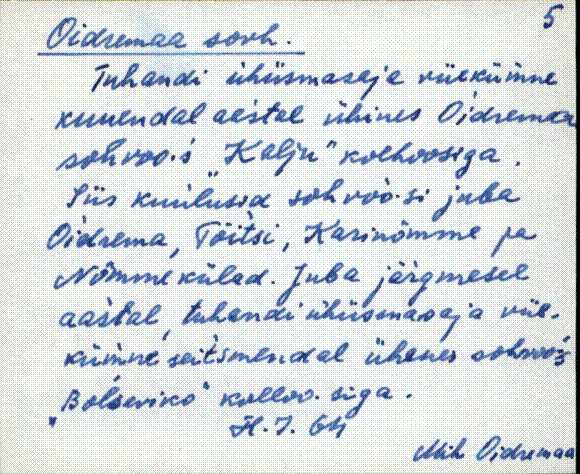 5
Oidremaa sovh.
Tuhandi ühüsmasaja viiekümne
kuuendal aastal ühines Oidremaa
sohvoo·s "Kalju" kolhoosiga.
Siis kuulusid sohvoo·si juba
Oidrema, Tõitsi, Karinõmme ja
Nõmme külad. Juba järgmesel
aastal, tuhandi ühüsmasaja viie-
kümne seitsmendal ühenes sohvoos
"Bolševiko" kolhoo·siga.
H. J. 64
Mih Oidremaa